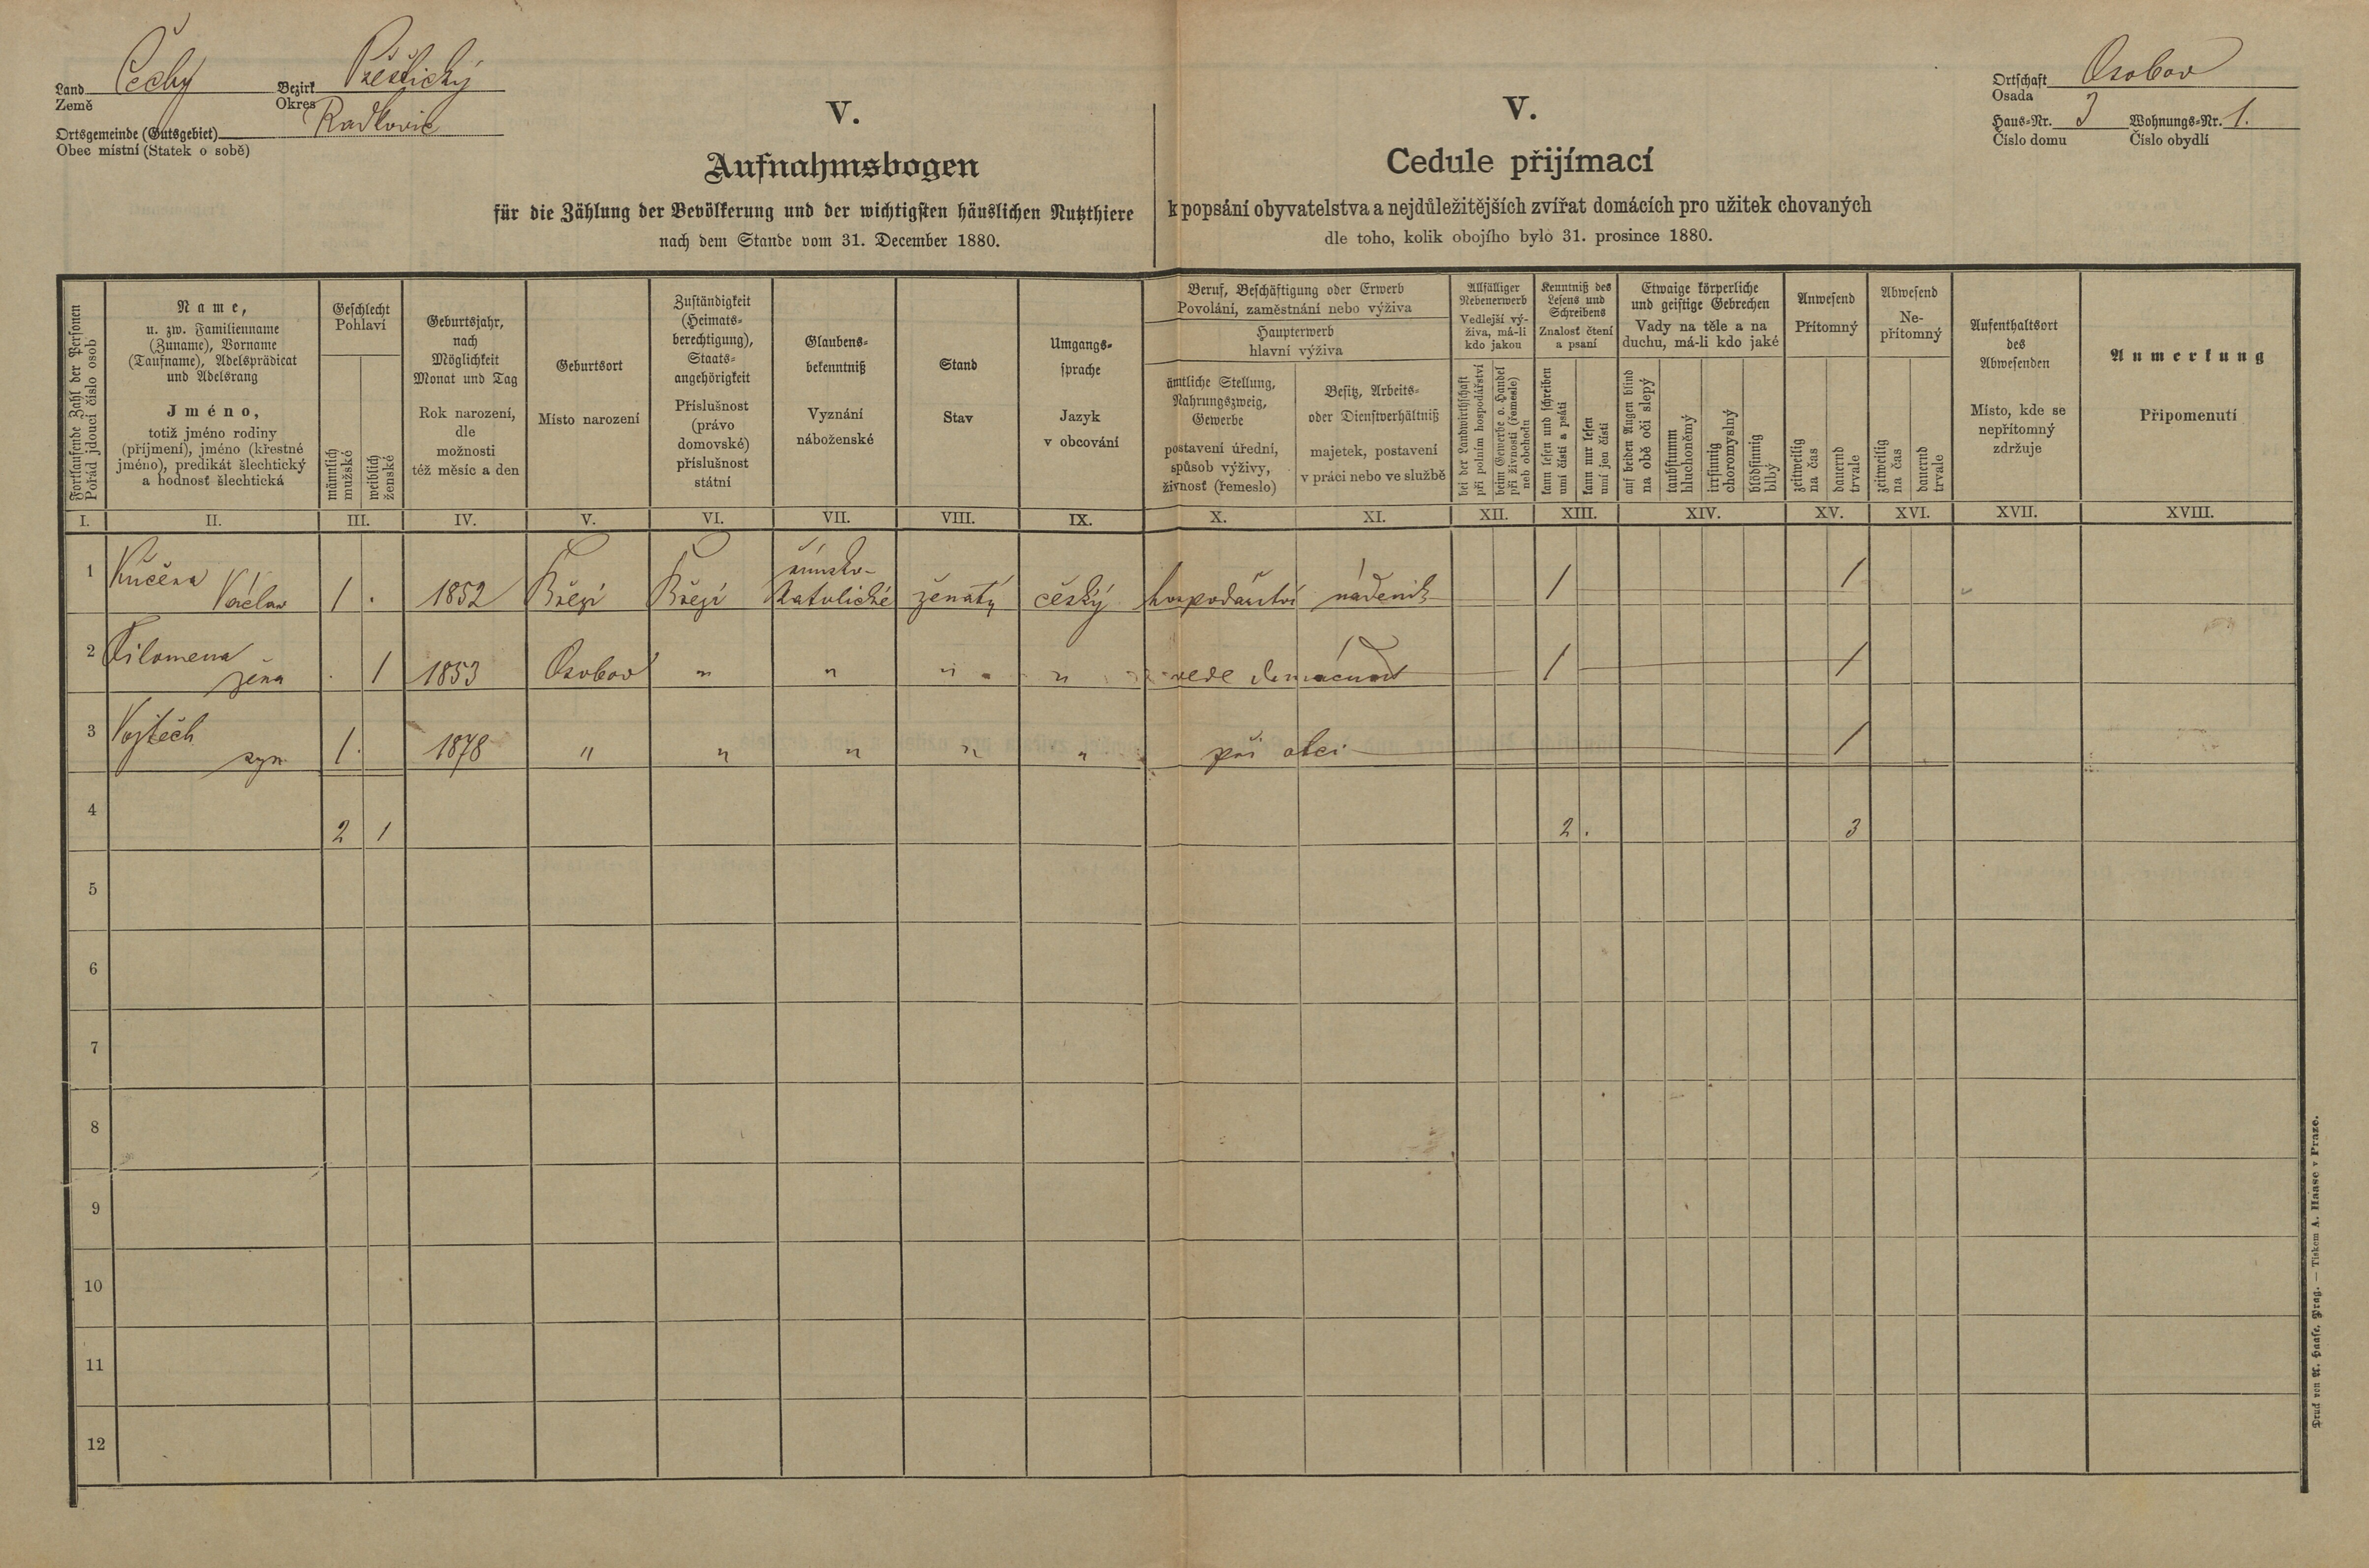 Land Čechy Bezirk Přeštický
Země Okres
Ortsgemeinde (Gutsgebiet) Radkovic
Obec místní (Statek o sobě)
Ortschaft Osobov
Osada
Haus-Nr. 3 Wohnungs-Nr. 1.
Číslo domu Číslo obydlí
V.
Aufnahmsbogen
für die Zählung der Bevölkerung und der wichtigsten häuslichen Nutzthiere
nach dem Stande vom 31. December 1880.
V.
Cedule přijímací
k popsání obyvatelstva a nejdůležitějších zvířat domácích pro užitek chovaných
dle toho, kolik obojího bylo 31. prosince 1880.
Fortlaufende Zahl der Personen
Pořád jdoucí číslo osob
Name,
u. zw. Familienname
(Zuname), Vorname
(Taufname), Adelsprädicat
und Adelsrang
Jméno,
totiž jméno rodiny
(příjmení), jméno (křestné
jméno), predikát šlechtický
a hodnosť šlechtická
Geschlecht
Pohlaví
männlich
mužské
weiblich
ženské
Geburtsjahr,
nach
Möglichkeit
Monat und Tag
Rok narození,
dle
možnosti
též měsíc a den
Geburtsort
Místo narození
Zuständigkeit
(Heimats-
berechtigung),
Staats-
angehörigkeit
Příslušnost
(právo
domovské)
příslušnost
státní
Glaubens-
bekenntniß
Vyznání
náboženské
Stand
Stav
Umgangs-
sprache
Jazyk
v obcování
Beruf, Beschäftigung oder Erwerb
Povolání, zaměstnání nebo výživa
Haupterwerb
hlavní výživa
ämtliche Stellung,
Nahrungszweig,
Gewerbe
postavení úřední,
spůsob výživy,
živnosť (řemeslo)
Besitz, Arbeits-
oder Dienstverhältniß
majetek, postavení
v práci nebo ve službě
Allfälliger
Nebenerwerb
Vedlejší vý-
živa, má-li
kdo jakou
bei der Landwirthschaft
při polním hospodářství
beim Gewerbe o. Handel
při živnosti (řemesle)
neb obchodu
Kenntniß des
Lesens und
Schreibens
Znalosť čtení
a psaní
kann lesen und schreiben
umí čísti a psáti
kann nur lesen
umí jen čísti
Etwaige körperliche
und geistige Gebrechen
Vady na těle a na
duchu, má-li kdo jaké
auf beiden Augen blind
na obě oči slepý
taubstumm
hluchoněmý
irrsinnig
choromyslný
blödsinnig
blbý
Anwesend
Přítomný
zeitweilig
na čas
dauernd
trvale
Abwesend
Ne-
přítomný
zeitweilig
na čas
dauernd
trvale
Aufenthaltsort
des
Abwesenden
Místo, kde se
nepřítomný
zdržuje
Anmerkung
Připomenutí
I. II. III. IV. V. VI. VII. VIII. IX. X. XI. XII. XIII. XIV. XV. XVI. XVII. XVIII.
1 Kučěra
Václav 1 . 1852 Březí Březí římsko-
katolické ženatý český hospodářství nádeník 1 1
2 Filomena
žena . 1 1853 Osobov " " " " vede domácnost 1 1
3 Vojtěch
syn 1 . 1878 " " " " " při otci 1
4 2 1 2 . 3
5
6
7
8
9
10
11
12
Druck von A. Haase, Prag. — Tiskem A. Haase v Praze.